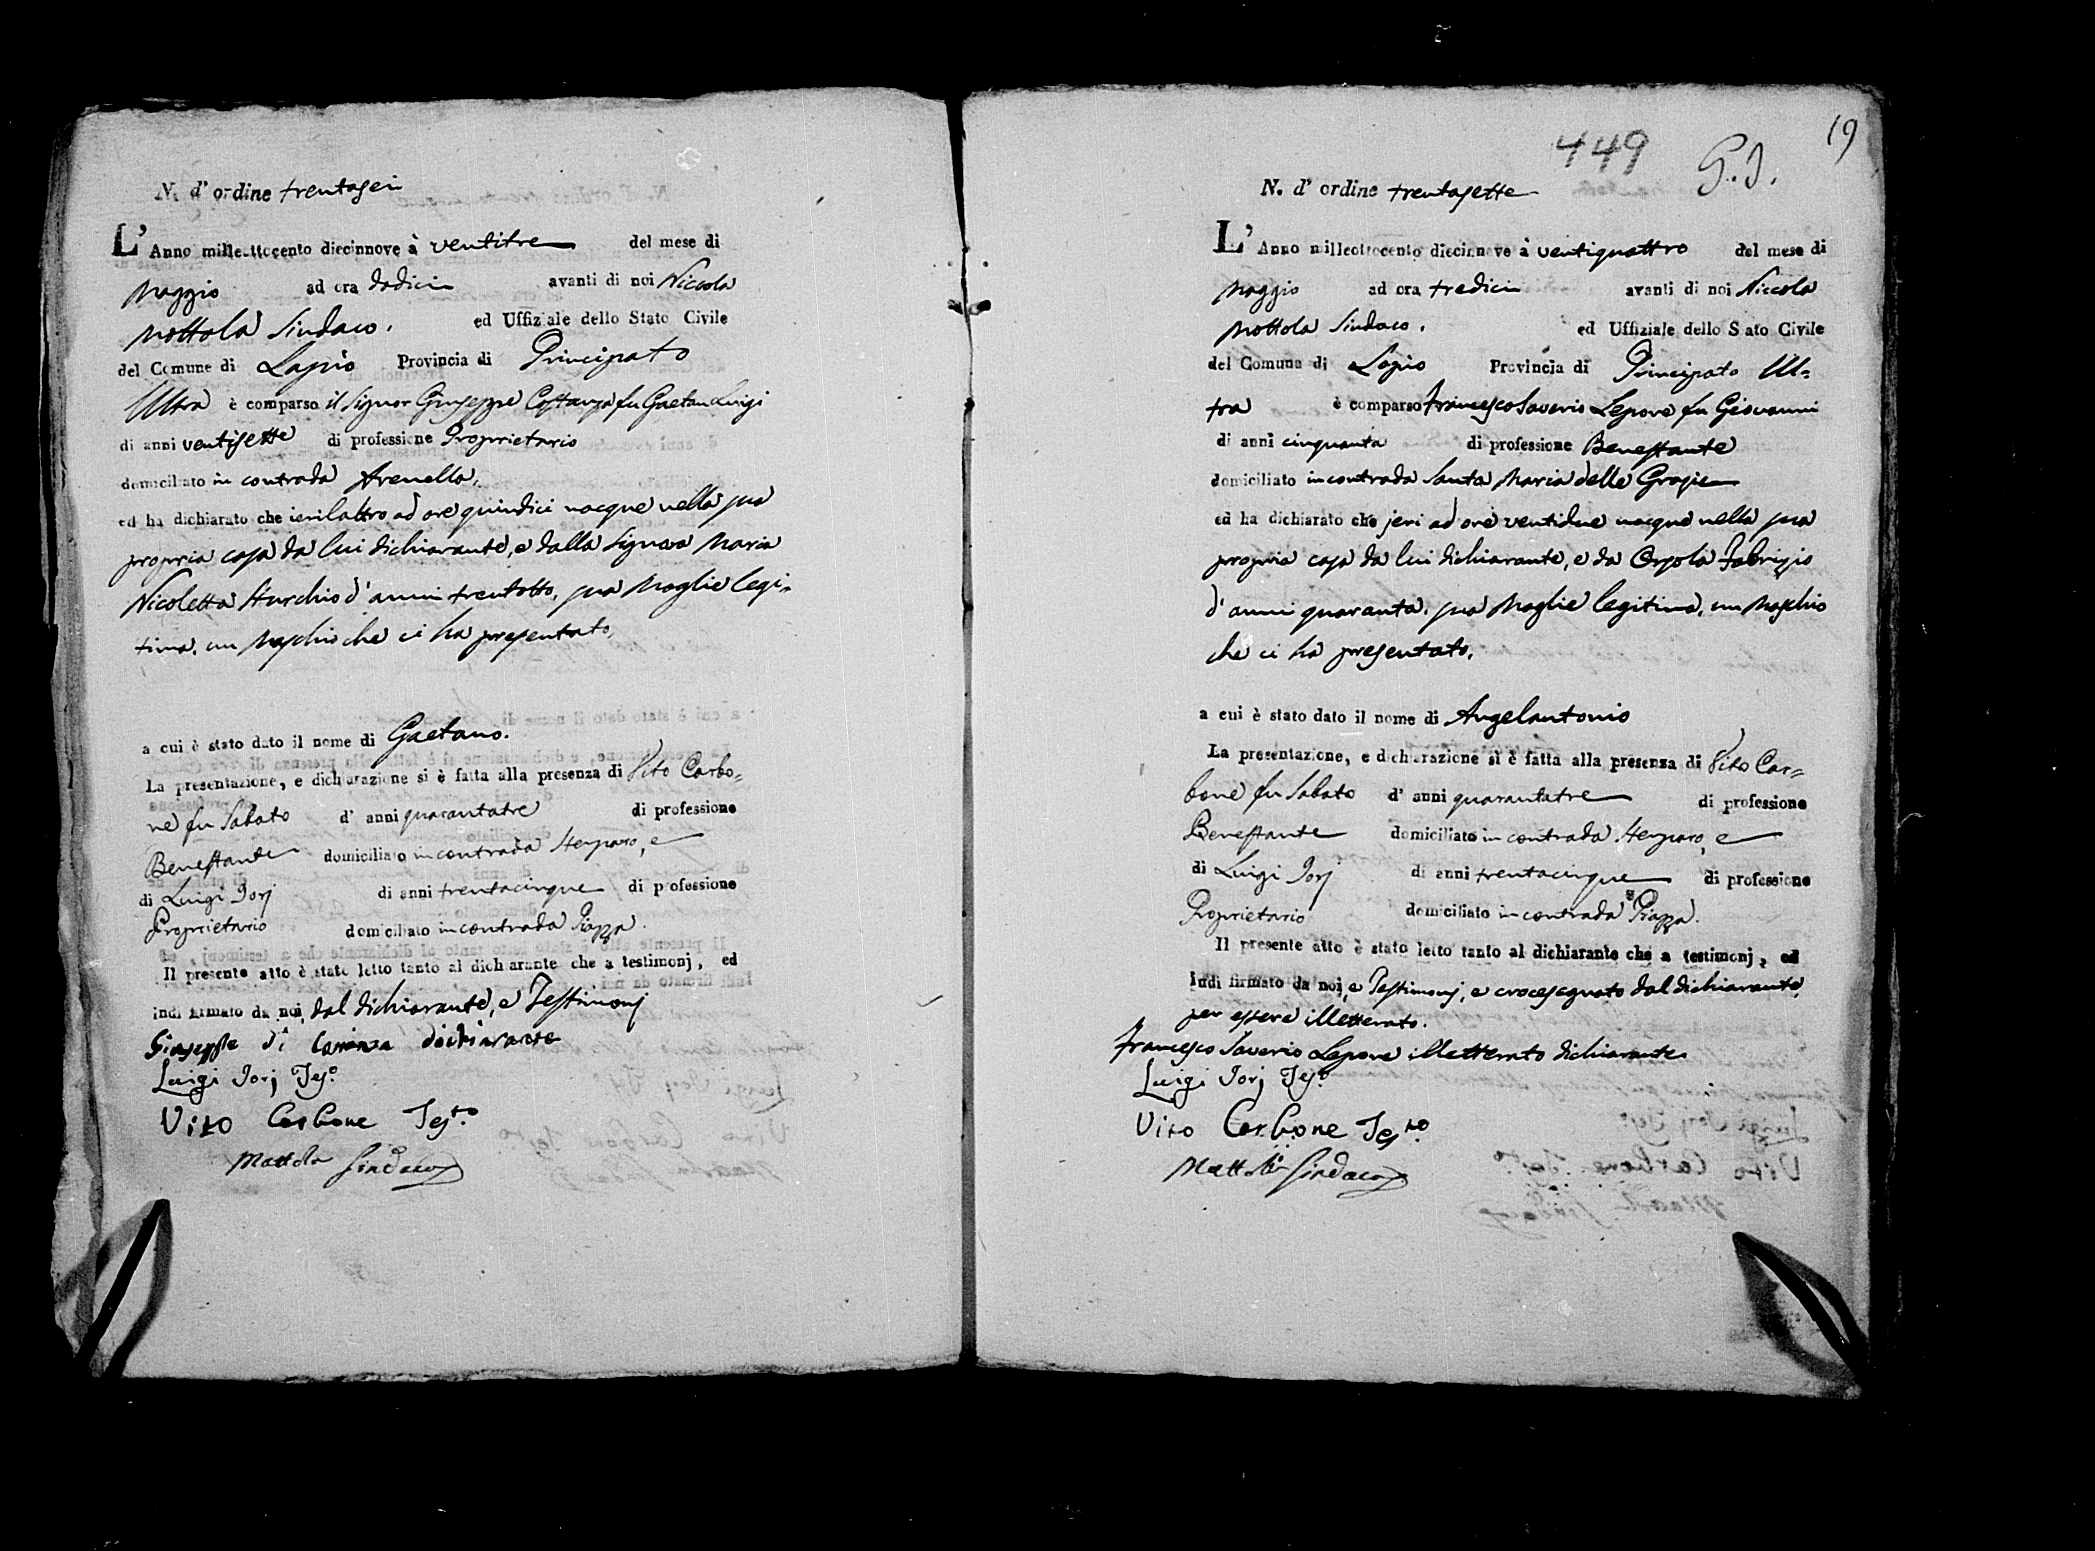 N. d' ordine trentasei
L' Anno milleottocento diecinnove à ventitre del mese di
Maggio ad ora dodici avanti di noi Niccola
Mottola Sindaco. ed Uffiziale dello Stato Civile
del Comune di Lapio Provincia di Principato
Ultra è comparso il Signor Giuseppe Costanza fu Gaetan Luigi
di anni ventisette di professione Proprietario
domiciliato in contrada Arenella,
ed ha dichiarato che jerilaltro ad ore quindici nacque nella sua
propria casa da lui dichiarante, e dalla Signora Maria
Nicoletta d' anni trentotto, sua Moglie legi=
tima, un Maschio che ci ha presentato,
a cui è stato dato il nome di Gaetano.
La presentazione, e dichiarazione si è fatta alla presenza di Vito Carbo=
ne fu Sabato d' anni quarantatre di professione
Benestante domiciliato in contrada , e
di Luigi Jorj di anni trentacinque di professione
Proprietario domiciliato in contrada Piazza.
Il presente atto è stato letto tanto al dichiarante che a testimonj, ed
indi firmato da noi, dal dichiarante, e Testimonj
Giuseppe di dichiarante
Luigi Jorj Tes.o
Vito Carbone Tes.to
Mottola Sindaco
449 19
N. d' ordine trentasette
L' Anno milleottocento diecinnove à ventiquattro del mese di
Maggio ad ora tredici avanti di noi Niccola
Mottola Sindaco. ed Uffiziale dello Stato Civile
del Comune di Lapio Provincia di Principato Ul=
tra è comparso Francesco Saverio Lepore fu Giovanni
di anni cinquanta di professione Benestante
domiciliato in contrada Santa Maria delle Grazie
ed ha dichiarato che jeri ad ore ventidue nacque nella sua
propria casa da lui dichiarante, e da Orsola Fabrizio
d' anni quaranta, sua Moglie legitima, un Maschio
che ci ha presentato,
a cui è stato dato il nome di Angelantonio
La presentazione, e dichiarazione si è fatta alla presenza di Vito Car=
bone fu Sabato d' anni quarantatre di professione
Benestante domiciliato in contrada , e
di Luigi Jorj di anni trentacinque di professione
Proprietario domiciliato in contrada Piazza.
Il presente atto è stato letto tanto al dichiarante che a testimonj, ed
indi firmato da noi, e Testimonj, e crocesegnato dal dichiarante,
per essere illetterato.
Francesco Saverio Lepore illetterato dichiarante
Luigi Jorj Tes.o
Vito Carbone Tes.to
Mottola Sindaco